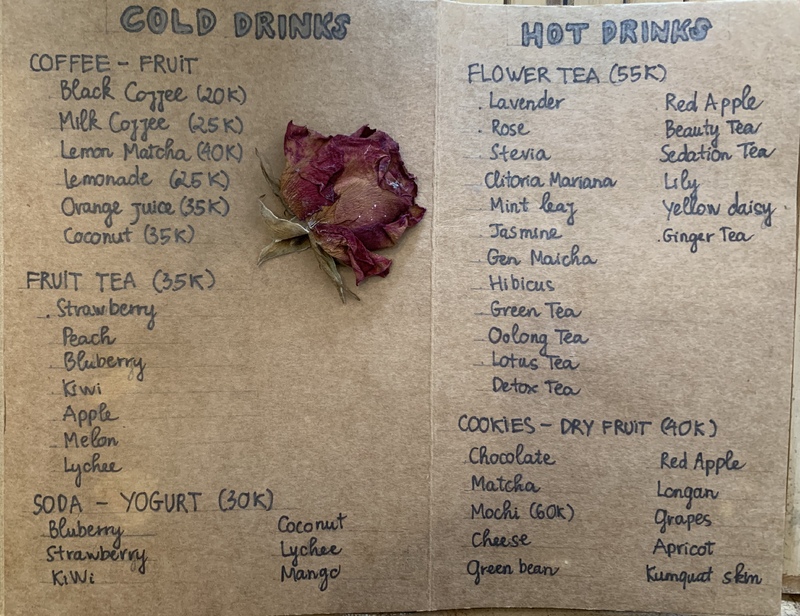 COLD DRINKS
COFFEE - FRUIT
Black Coffee (20K)
Milk Coffee (25K)
Lemon Matcha (40K)
Lemonade (25K)
Orange juice (35K)
Coconut (35K)
FRUIT TEA (35K)
Strawberry
Peach
Bluberry
Kiwi
Apple
Melon
Lychee
SODA - YOGURT (30K)
Bluberry
Strawberry
KiWi
Coconut
Lychee
Mango
HOT DRINKS
FLOWER TEA (55K)
Lavender
Rose
Stevia
Clitoria Mariana
Mint leaf
Jasmine
Gen Maicha
Hibicus
Green Tea
Oolong Tea
Lotus Tea
Detox Tea
Red Apple
Beauty Tea
Sedation Tea
Lily
Yellow daisy
Ginger Tea
COOKIES - DRY FRUIT (40K)
Chocolate
Matcha
Mochi (60K)
Cheese
Green bean
Red Apple
Longan
Grapes
Apricot
Kumquat skin